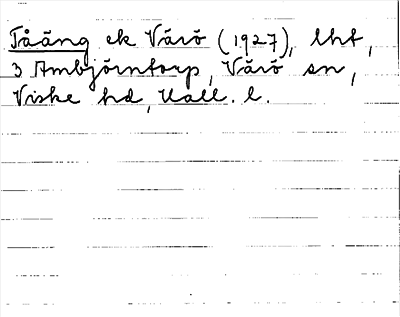 Tåäng ek Värö (1927), lht,
3 Ambjörntorp, Värö sn,
Viske hd, Hall. l.